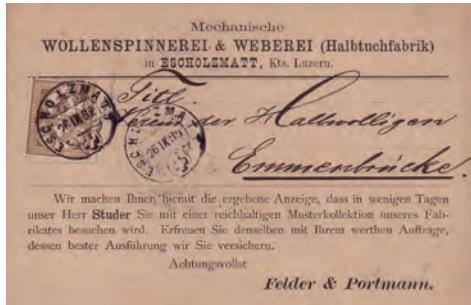 Mechanische
WOLLENSPINNEREI & WEBEREI (Halbtuchfabrik)
in ESCHOLZMATT, Kts. Luzern.
Titl.
Verein der Halbwolligen
Emmenbrücke.
ESCHOLZMATT
26 IX 85
ESCHOLZMATT
26 IX 85
Wir machen Ihnen hiemit die ergebene Anzeige, dass in wenigen Tagen
unser Herr Studer Sie mit einer reichhaltigen Musterkollektion unseres Fab-
rikates besuchen wird. Erfreuen Sie denselben mit Ihrem werthen Auftrage,
dessen bester Ausführung wir Sie versichern.
Achtungsvollst
Felder & Portmann.